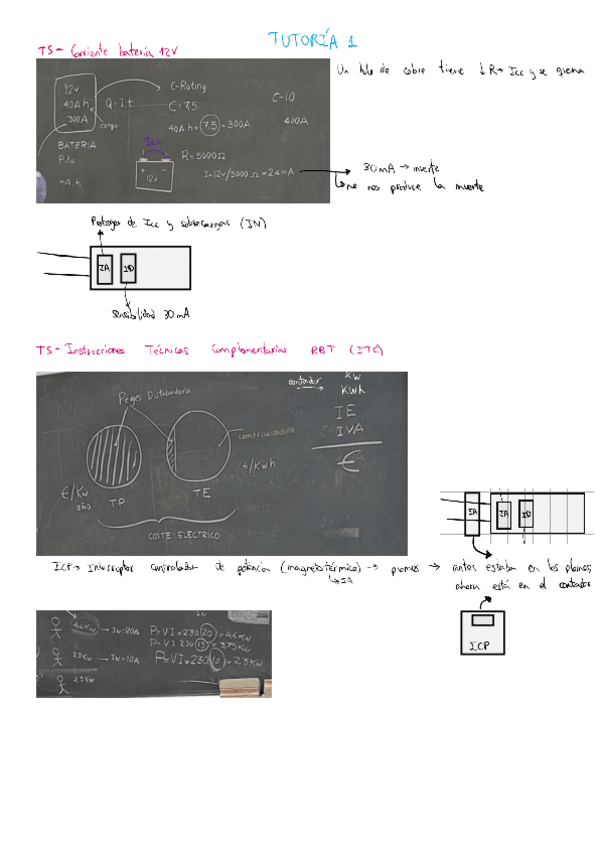 TUTORÍA 1
T5- Corriente batería 12V
Un hilo de cobre tiene ↓R→ Icc y se quema
12v
40A h
300A
carga
Q=I.t
C-Rating
C=7,5
40Ah·7,5=300A
C-10
400A
BATERIA
Pila
mA.h
Icc
+ -
12v
R=5000Ω
I=12v/5000Ω=2.4mA
30mA → muerte
no nos produce la muerte
Proteger de Icc y sobrecargas (IN)
IA ID
sensibilidad 30mA
T5- Instrucciones Técnicas Complementarias RBT (ITC)
Peajes Distribuidora
comercializadora
€/Kw año
TP
TE
€/Kwh
COSTE ELECTRICO
contador
KW
KWh
IE
IVA
€
ICP→ Interruptor controlador de potencia (magnetotérmico) → plomos → antes estaba en los plomos,
↳IA
ahora está en el contador
IA IA ID
ICP
4.6Kw → IN=20A
P=VI=230·20=4.6Kw
P=VI=230·15=3.75Kw
2.3Kw → IN=10A
P=VI=230·10=2.3Kw
2.3Kw